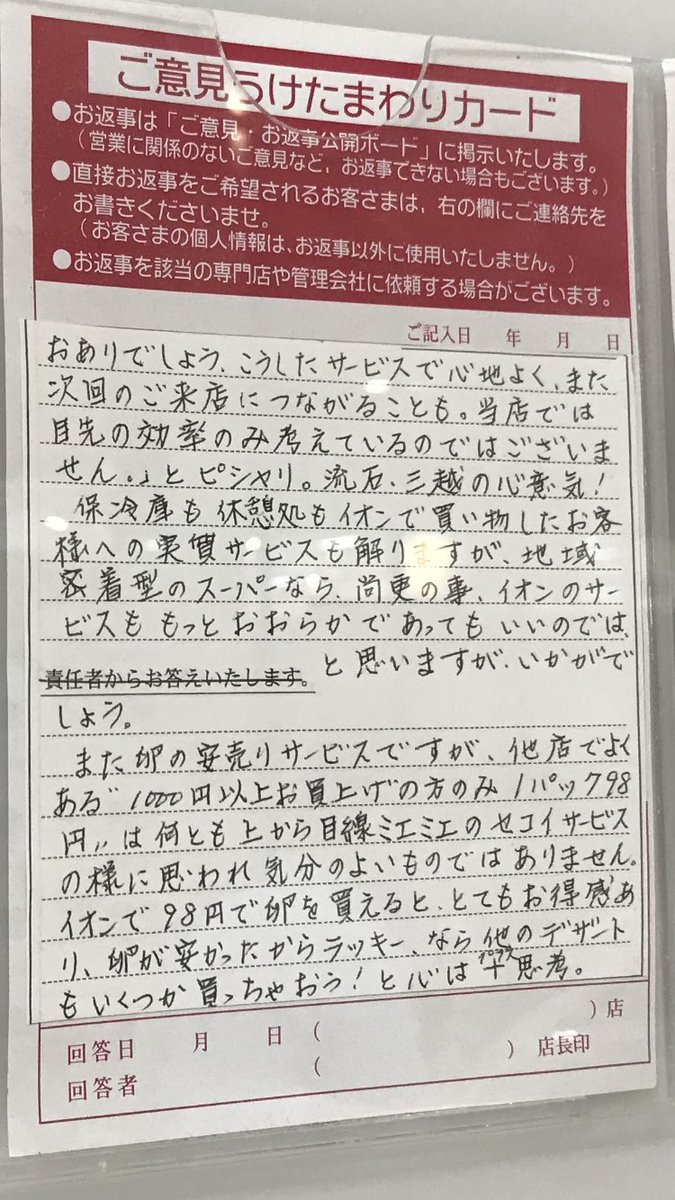 ご意見うけたまわりカード
●お返事は「ご意見・お返事公開ボード」に掲示いたします。
(営業に関係のないご意見など，お返事できない場合もございます。)
●直接お返事をご希望されるお客さまは，右の欄にご連絡先を
お書きくださいませ。
(お客さまの個人情報は、お返事以外に使用いたしません。)
●お返事を該当の専門店や管理会社に依頼する場合がございます。
ご記入日 年 月 日
おありでしょう、こうしたサービスで心地よく、また
次回のご来店につながることも。当店では
目先の効率のみ考えているのではございま
せん。」とピシャリ。流石、三越の心意気！
保冷庫も休憩処もイオンで買い物したお客
様への実質サービスも解りますが、地域
密着型のスーパーなら、尚更の事、イオンのサー
ビスももっとおおらかであってもいいのでは、
責任者からお答えいたします。 と思いますが、いかがで
しょう。
また卵の安売りサービスですが、他店でよく
ある〝1000円以上お買上げの方のみ1パック98
円〟は何とも上から目線ミエミエのセコイサービス
の様に思われ気分のよいものではありません。
イオンで98円で卵を買えると、とてもお得感あ
り、卵が安かったからラッキー、なら他のデザート
もいくつか買っちゃおう！と心は十思考。
プラス
回答日 月 日 ( )店
回答者 ( ) 店長印